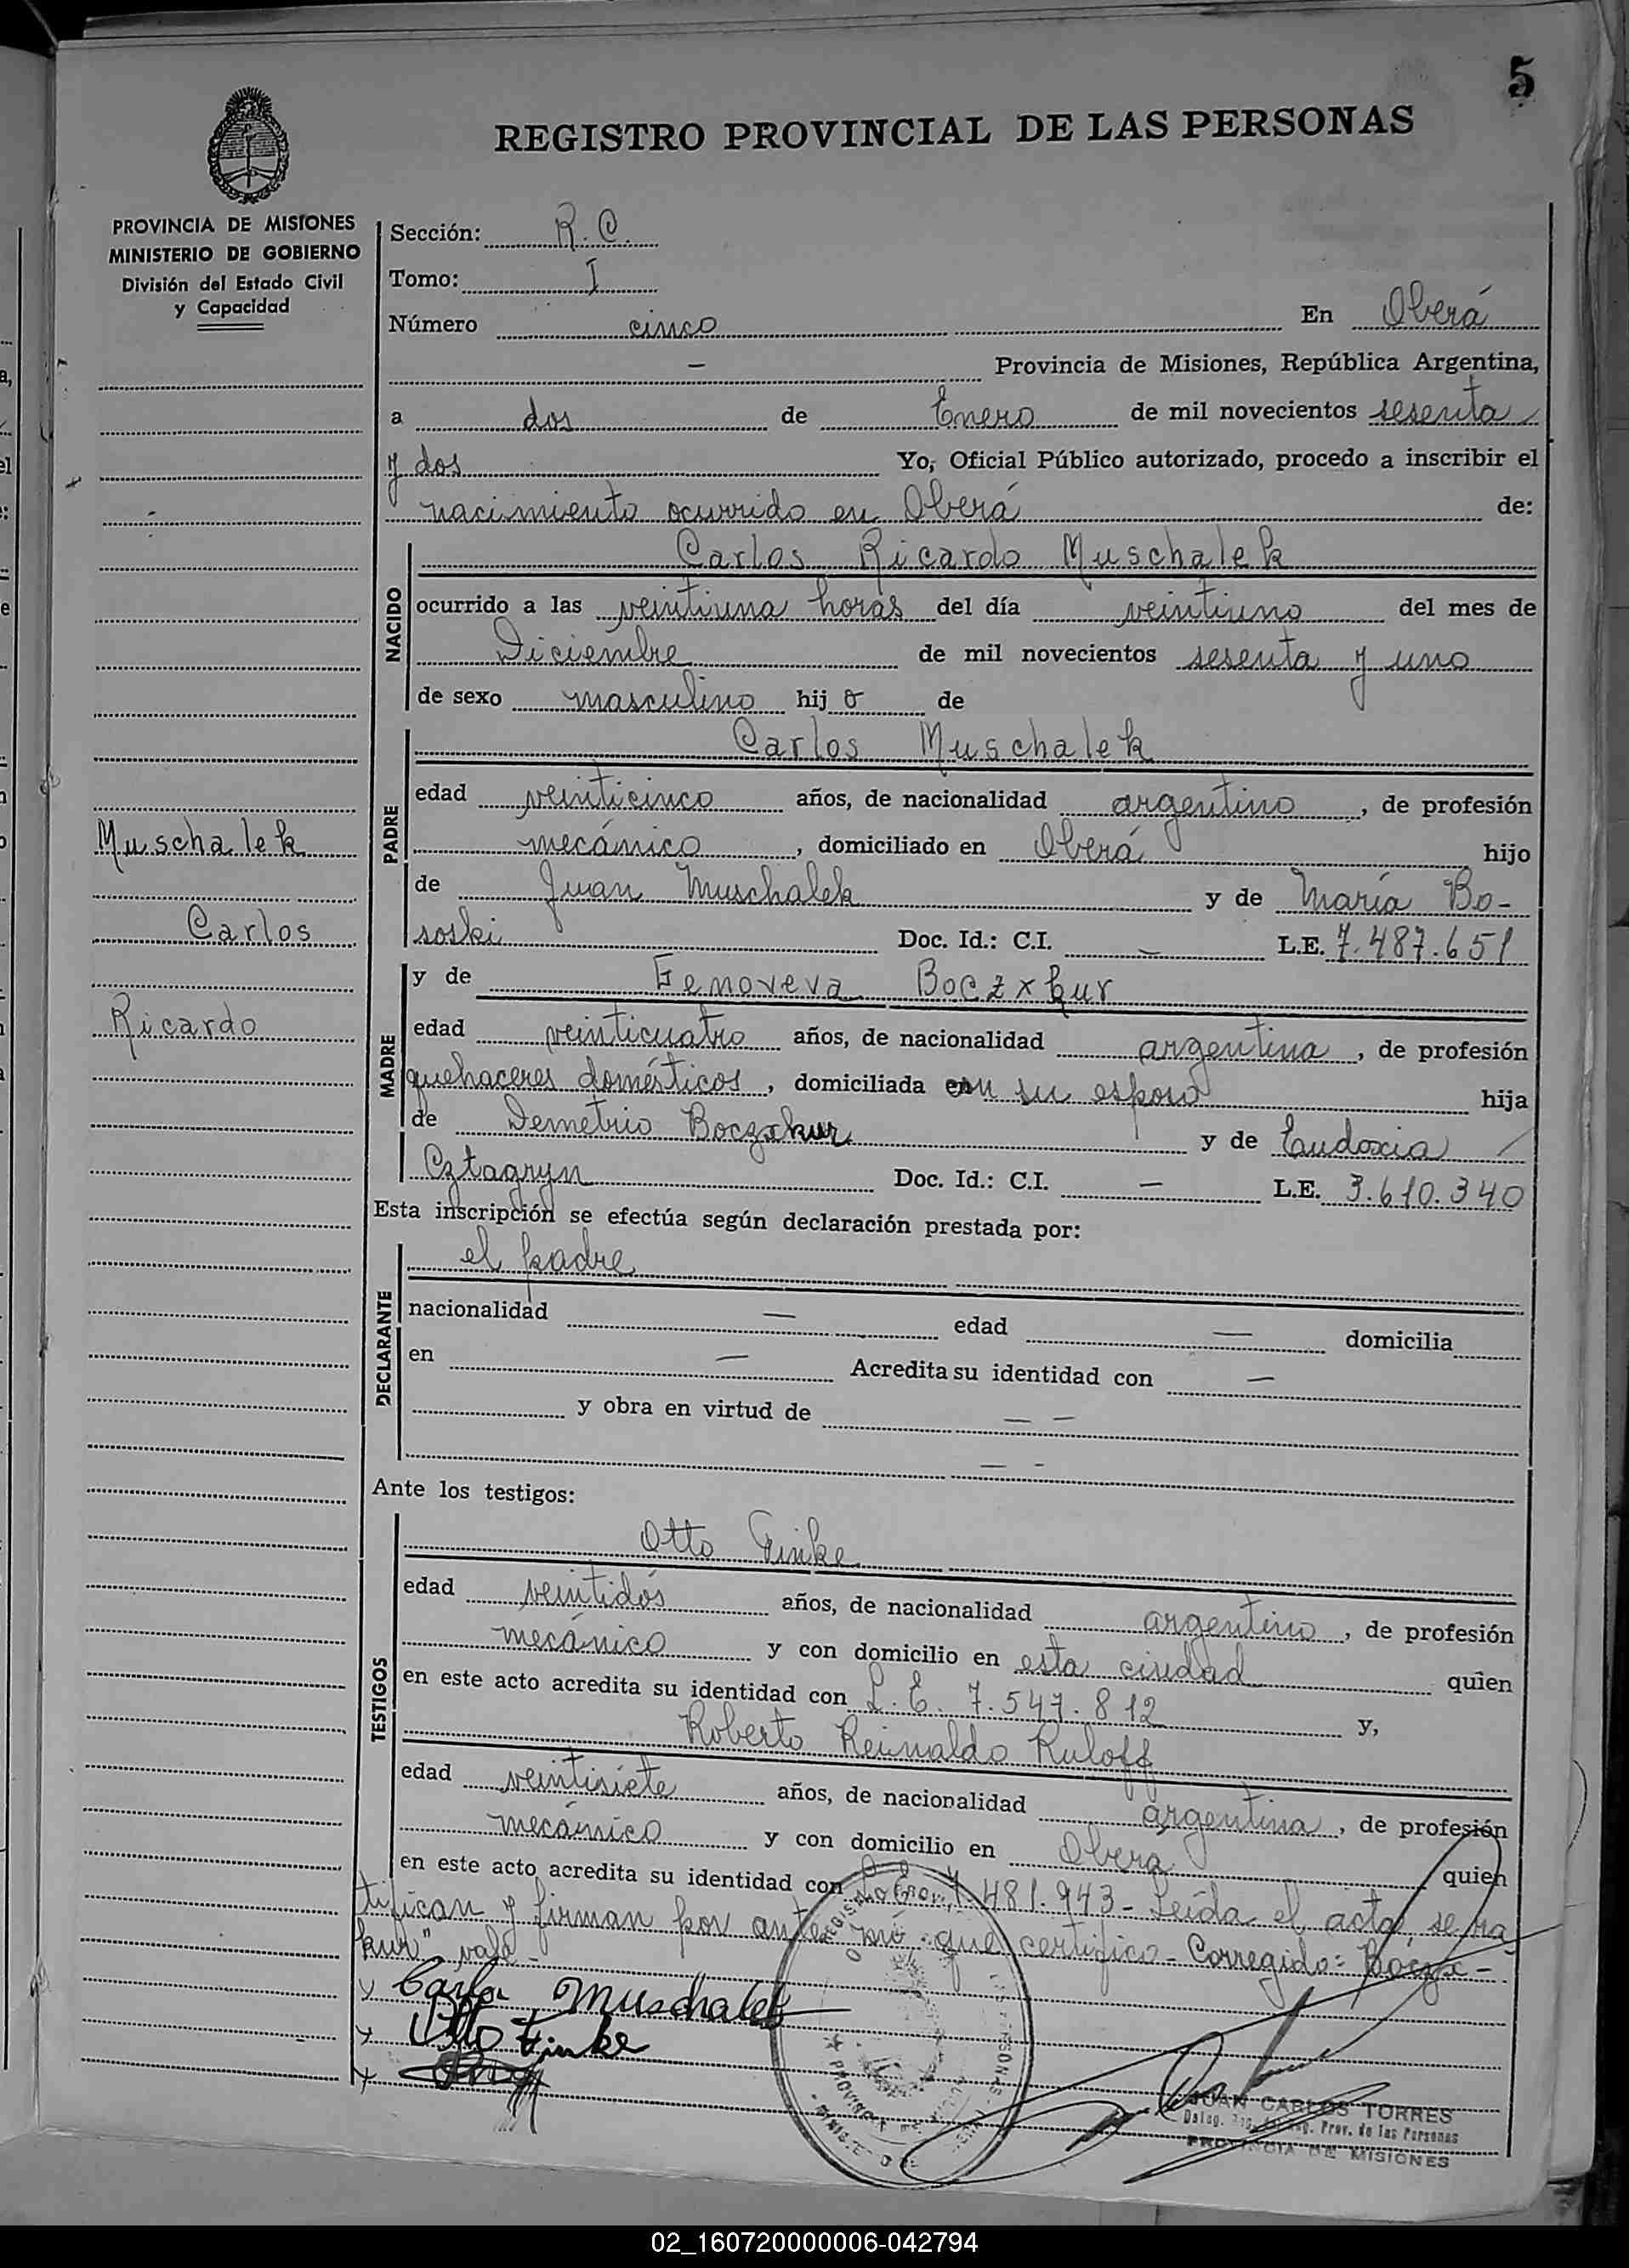 5
REGISTRO PROVINCIAL DE LAS PERSONAS
PROVINCIA DE MISIONES
MINISTERIO DE GOBIERNO
División del Estado Civil
y Capacidad
Sección: R. C.
Tomo: I
Número cinco En Oberá
— Provincia de Misiones, República Argentina,
a dos de Enero de mil novecientos sesenta
y dos Yo, Oficial Público autorizado, procedo a inscribir el
nacimiento ocurrido en Oberá de:
NACIDO
Carlos Ricardo Muschalek
ocurrido a las veintiuna horas del día veintiuno del mes de
Diciembre de mil novecientos sesenta y uno
de sexo masculino hijo de
PADRE
Carlos Muschalek
edad veinticinco años, de nacionalidad argentino, de profesión
mecánico, domiciliado en Oberá hijo
de Juan Muschalek y de María Bo-
soski Doc. Id.: C.I. — L.E. 7.487.651
Muschalek
Carlos
Ricardo
MADRE
y de Genoveva Boczxkur
edad veinticuatro años, de nacionalidad argentina, de profesión
quehaceres domésticos, domiciliada con su esposo hija
de Demetrio Boczxkur y de Eudoxia
Cztagryn Doc. Id.: C.I. — L.E. 3.610.340
Esta inscripción se efectúa según declaración prestada por:
DECLARANTE
el padre
nacionalidad — edad — domicilia
en — Acredita su identidad con —
y obra en virtud de — —
— -
Ante los testigos:
TESTIGOS
Otto Finke
edad veintidós años, de nacionalidad argentino, de profesión
mecánico y con domicilio en esta ciudad quien
en este acto acredita su identidad con L. E. 7.547.812 y,
Roberto Reinaldo Ruloff
edad veintisiete años, de nacionalidad argentina, de profesión
mecánico y con domicilio en Oberá quien
en este acto acredita su identidad con 7.481.943- Leída el acta, se ra-
tifican y firman por ante mí que certifico- Corregido: "Boczx-
kur" vale-
Carlos Muschalek
Otto Finke
JUAN CARLOS TORRES
Prov. de las Personas
PROVINCIA DE MISIONES
02_160720000006-042794